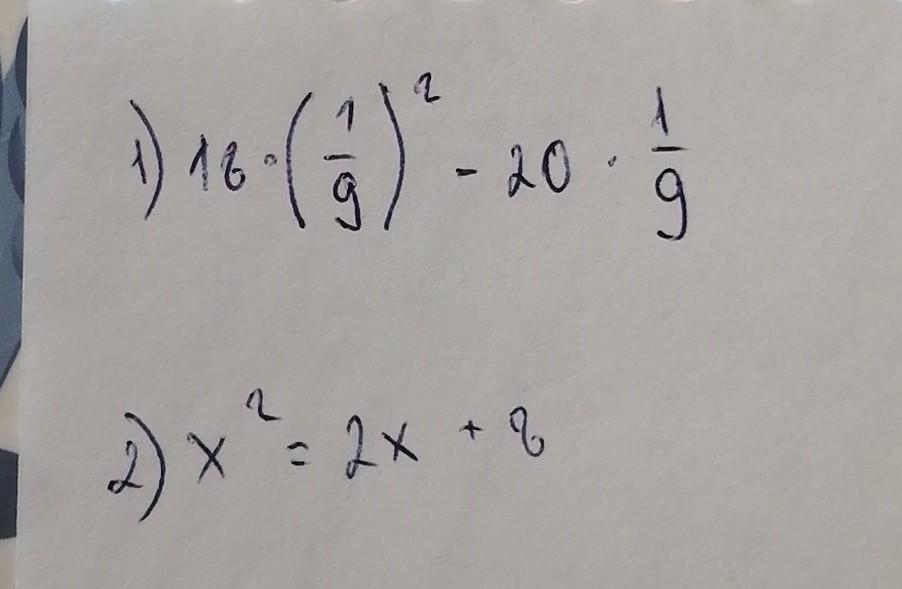 1) 18 · (1/9)² - 20 · 1/9
2) x² = 2x + 8